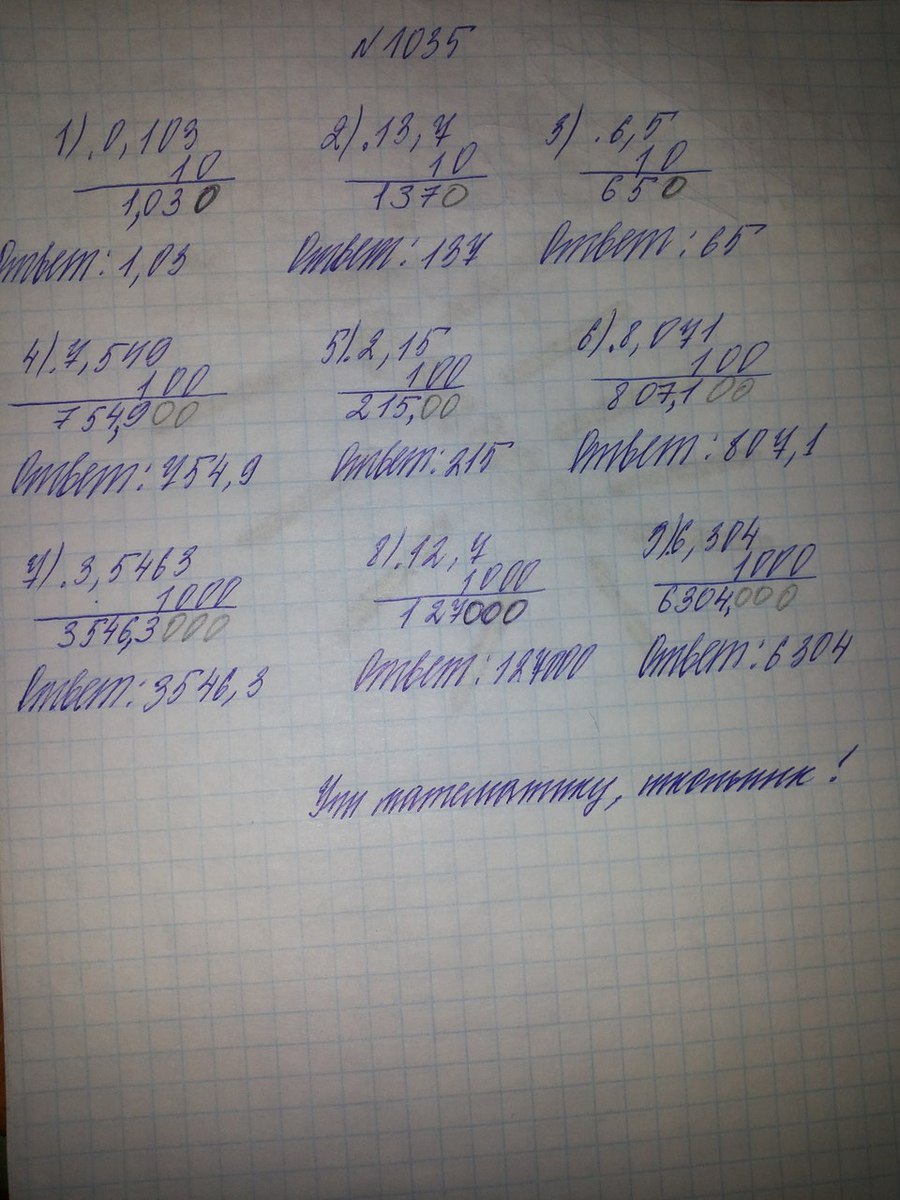 № 1035
1) . 0,103 2) . 13,7 3) . 6,5
10 10 10
1,030 1370 650
Ответ: 1,03 Ответ: 137 Ответ: 65
4) . 7,549 5) . 2,15 6) . 8,071
100 100 100
754,900 215,00 807,100
Ответ: 754,9 Ответ: 215 Ответ: 807,1
7) . 3,5463 8) . 12,7 9) . 6,304
1000 1000 1000
3546,3000 127000 6304,000
Ответ: 3546,3 Ответ: 127000 Ответ: 6304
Учи математику, школьник!